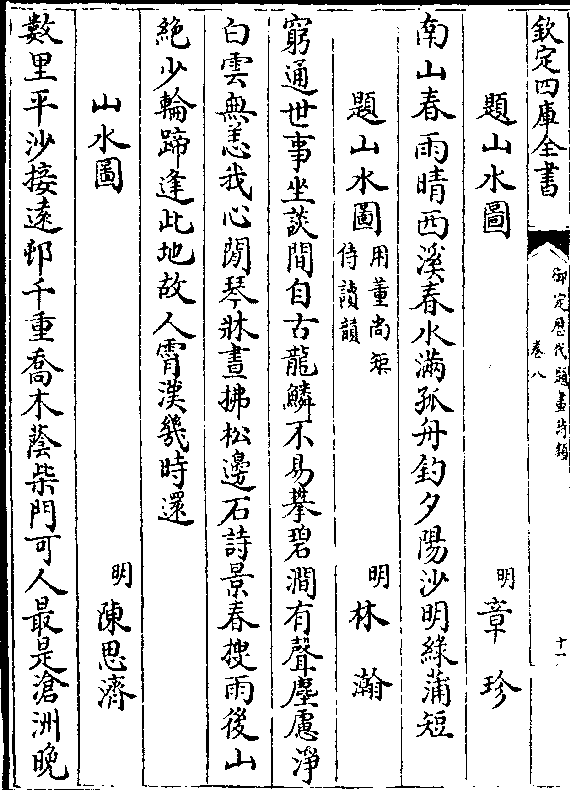 欽定四庫全書
御定歷代題畫詩類
卷八
十一
題山水圖
明 章珍
南山春雨晴西溪春水滿孤舟釣夕陽沙明綠蒲短
題山水圖用董尚矩
侍讀韻
明 林瀚
窮通世事坐談間自古龍鱗不易攀碧澗有聲塵慮淨
白雲無恙我心閒琴牀晝拂松邊石詩景春搜雨後山
絶少輪蹄逢此地故人霄漢幾時還
山水圖
明 陳思濟
數里平沙接遠邨千重喬木蔭柴門可人最是滄洲晚